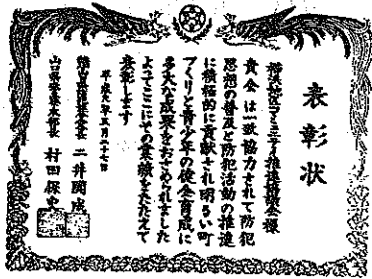 表彰状
推進協議会様
貴会は一致協力されて防犯
思想の普及と防犯活動の推進
に積極的に貢献され明るい町
づくりと青少年の健全育成に
多大な成果をおさめられました
よってここにその業績をたたえて
表彰します
平成九年五月二十七日
二井関成
山口県警察本部長 村田保史